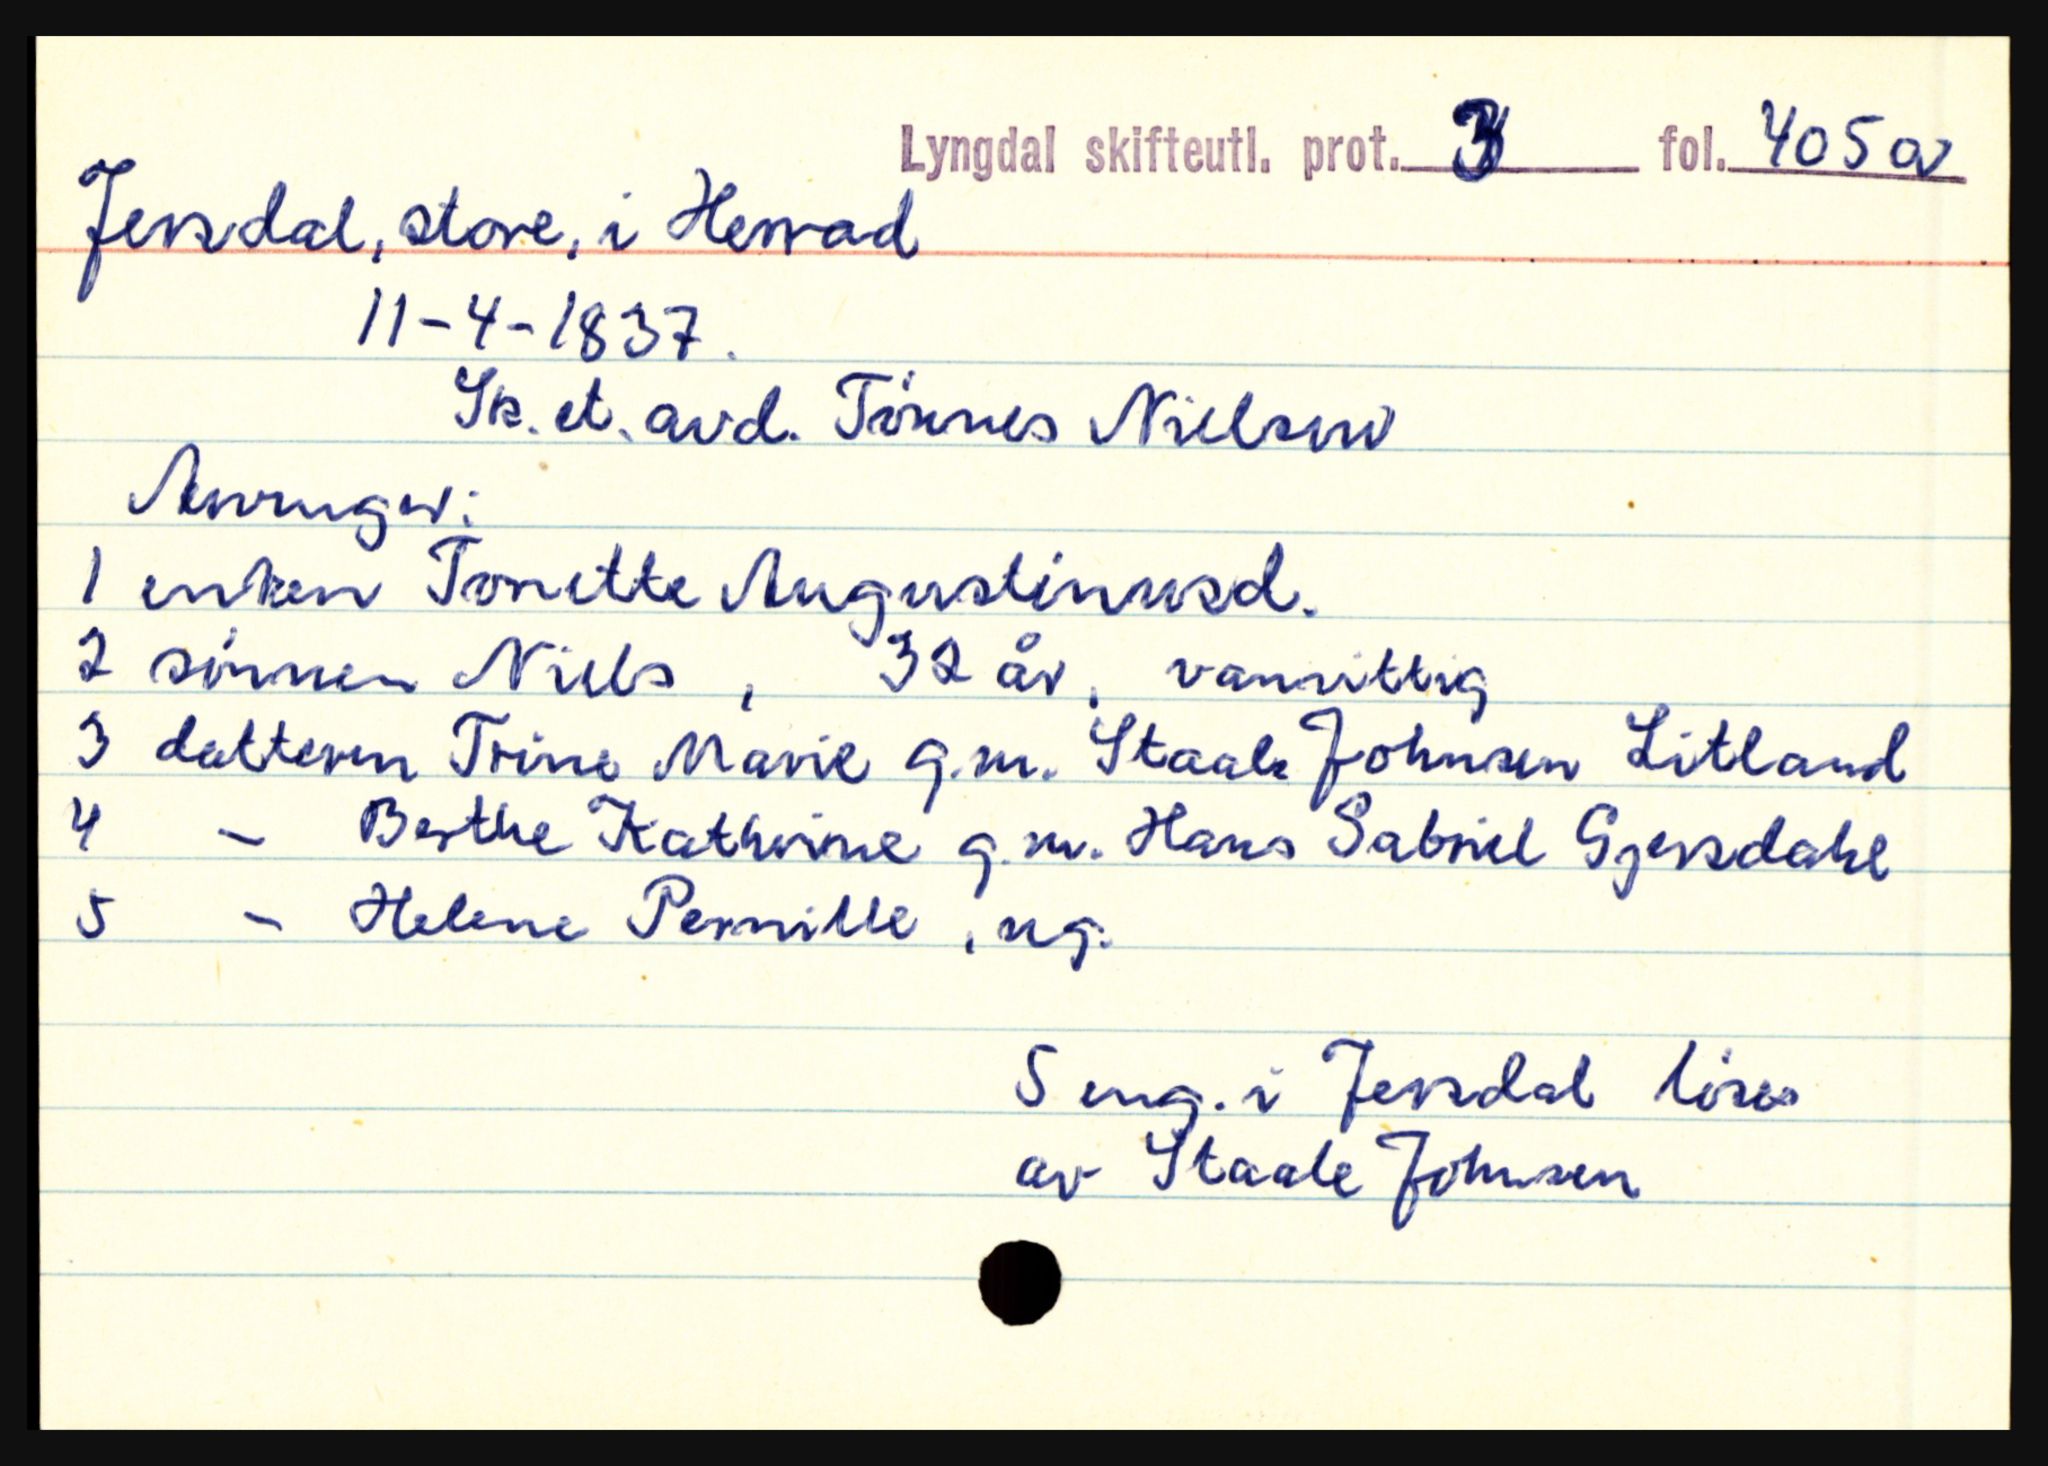 Lyngdal skifteutl. prot. 3 fol. 405 a
Jersdal, store, i Herrad
11-4-1837.
Sk. et. avd. Tønnes Nielsen
Arvinger:
1 enken Tonette Augustinusd.
2 sønnen Niels, 32 år, vanvittig
3 datteren Trine Marie g.m. Staale Johnsen Litland
4 - Berthe Kathrine g.m. Hans Gabriel Gjersdahl
5 - Helene Pernille, ug.
5 eng. i Jersdal løses
av Staale Johnsen